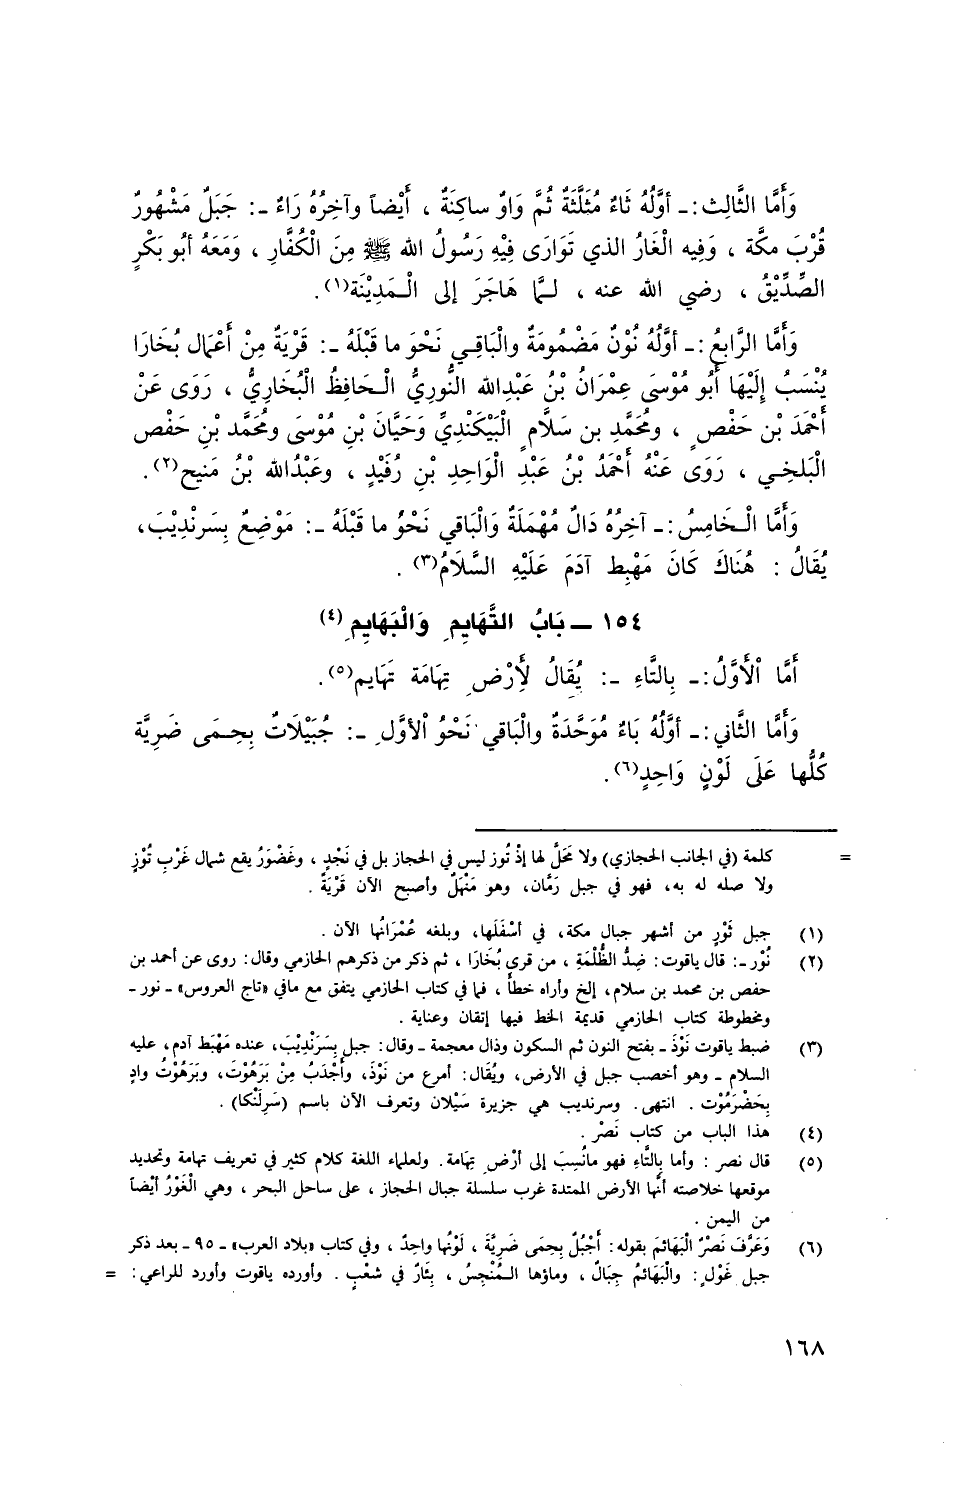 وَأَمَّا الثَّالِث :ـ أوَّلُهُ ثَاءٌ مُثَلَّثَةٌ ثُمَّ وَاوٌ ساكِنَةٌ ، أَيْضاً وآخِرُهُ رَاءٌ ـ: جَبَلٌ مَشْهُورٌ
قُرْبَ مكَّة ، وَفِيه الْغَارُ الذي تَوَارَى فِيْهِ رَسُولُ الله ﷺ مِنَ الْكُفَّارِ ، وَمَعَهُ أَبُو بَكْرٍ
الصِّدِّيْقُ ، رضي الله عنه ، لـمَّا هَاجَرَ إلى الْـمَدِيْنَة(١).
وَأَمَّا الرَّابعُ :ـ أوَّلُهُ نُوْنٌ مَضْمُومَةٌ والْبَاقِـي نَحْوَ ما قَبْلَهُ ـ: قَرْيَةٌ مِنْ أَعْمَالِ بُخَارَا
يُنْسَبُ إِلَيْهَا أَبُو مُوْسَى عِمْرَانُ بْنُ عَبْدِالله النُّورِيُّ الْـحَافِظُ الْبُخَارِيُّ ، رَوَى عَنْ
أَحْمَدَ بْن حَفْصٍ ، ومُحَمَّدِ بن سَلَامٍ الْبَيْكَنْدِيِّ وَحَيَّانَ بْنِ مُوْسَى ومُحَمَّد بْنِ حَفْص
الْبَلخِـي ، رَوَى عَنْهُ أَحْمَدُ بْنُ عَبْدِ الْوَاحِدِ بْنِ رُفَيْدٍ ، وعَبْدُالله بْنُ مَنيح(٢).
وَأَمَّا الْـخَامِسُ :ـ آخِرُهُ دَالٌ مُهْمَلَةٌ وَالْبَاقي نَحْوُ ما قَبْلَهُ ـ: مَوْضِعٌ بِسَرنْدِيْبَ،
يُقَالُ : هُنَاكَ كَانَ مَهْبِط آدَمَ عَلَيْهِ السَّلَامُ(٣) .
١٥٤ ــ بَابُ التَّهَايِمِ وَالْبَهَايِمِ (٤)
أَمَّا اْلأَوَّلُ :ـ بِالتَّاءِ ـ: يُقَالُ لأَِرْضِ تِهَامَة تَهَايم(٥).
وَأَمَّا الثَّاني :ـ أوَّلُهُ بَاءٌ مُوَحَّدَةٌ والْبَاقي نَحْوُ اْلأوَّلِ ـ: جُبَيْلَاتٌ بِحِـمَى ضَرِيَّة
كُلُّها عَلَى لَوْنٍ وَاحِدٍ(٦).
= كلمة (في الجانب الحجازي) ولا مَحَلَّ لها إذْ تُوز ليس في الحجاز بل في نَجْدٍ ، وغَضْوَرُ يقع شمال غَرْبِ تُوْزٍ
ولا صله له به، فهو في جبل رَمَّان، وهو مَنْهَلٌ وأصبح الآن قَرْيَةً .
(١) جبل ثَوْرٍ من أشهر جبال مكة، في أسْفَلَها، وبلغه عُمْرَانُها الآن .
(٢) نُوْر ـ: قال ياقوت: ضِدُّ الظُّلْمَةِ ، من قرى بُخَارَا ، ثم ذكر من ذكرهم الحازمي وقال: روى عن أحمد بن
حفص بن محمد بن سلام، إلخ وأراه خطأ ، فما في كتاب الحازمي يتفق مع مافي «تاج العروس» ـ نور ـ
ومخطوطة كتاب الحازمي قديمة الخط فيها إتقان وعناية .
(٣) ضبط ياقوت نَوْذَ ـ بفتح النون ثم السكون وذال معجمة ـ وقال: جبل بِسَرَنْدِيْبَ، عنده مَهْبَط آدم، عليه
السلام ـ وهو أخصب جبل في الأرض، ويُقَال: أمرع من نَوْذَ، وأجْدَبُ مِنْ بَرَهُوْتَ، وبَرَهُوْتُ وادٍ
بِحَضْرَمُوْت . انتهى. وسرنديب هي جزيرة سَيْلان وتعرف الآن باسم (سَرِلَنْكا) .
(٤) هذا الباب من كتاب نَصْرٍ .
(٥) قال نصر : وأما بِالتَّاءِ فهو مانُسِبَ إلى أرْضِ تِهَامة. ولعلماء اللغة كلام كثير في تعريف تهامة وتحديد
موقعها خلاصته أنَّها الأرض الممتدة غرب سلسلة جبال الحجاز ، على ساحل البحر ، وهي الْغَوْرُ أَيْضاً
من اليمن .
(٦) وَعَرَّفَ نَصْرٌ الْبَهَائمَ بقوله: أَجْبُلٌ بِحِمَى ضَرِيَّةَ ، لَوْنُها واحِدٌ ، وفي كتاب «بلاد العرب» ـ ٩٥ ـ بعد ذكر
جبل غَوْلٍ: والْبَهَائمُ جِبَالٌ ، وماؤها الْـمُنْبَجِسُ ، بِئَارٌ في شعْبٍ . وأورده ياقوت وأورد للراعي: =
١٦٨